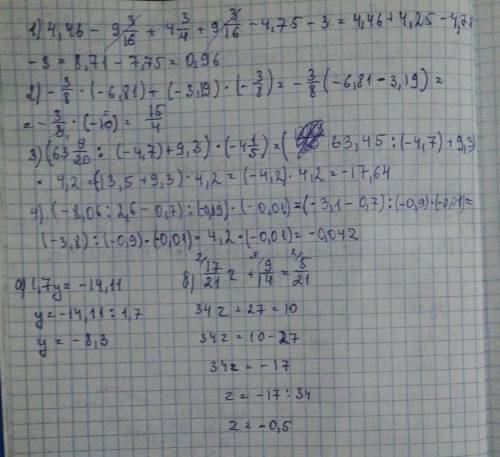 1) 4,46 - 9 3/16 + 4 3/4 + 9 3/16 - 4,75 - 3 = 4,46 + 4,25 - 4,75
-3 = 8,71 - 7,75 = 0,96
2) -3/8 · (-6,81) + (-3,19) · (-3/8) = -3/8 (-6,81 - 3,19) =
= -3/8 · (-10) = 15/4
3) (63 9/20 : (-4,7) + 9,3) · (-4 1/5) = ( 63,45 : (-4,7) + 9,3)
· 4,2 = (13,5 + 9,3) · 4,2 = (-4,2) · 4,2 = -17,64
4) (-8,06 : 2,6 - 0,7) : (-0,9) · (-0,01) = (-3,1 - 0,7) : (-0,9) · (-0,01) =
(-3,8) : (-0,9) · (-0,01) = 4,2 · (-0,01) = -0,042
а) 1,7y = -14,11
y = -14,11 : 1,7
y = -8,3
б) 17/21 z + 9/14 = 5/21
34z + 27 = 10
34z = 10 - 27
34z = -17
z = -17 : 34
z = -0,5